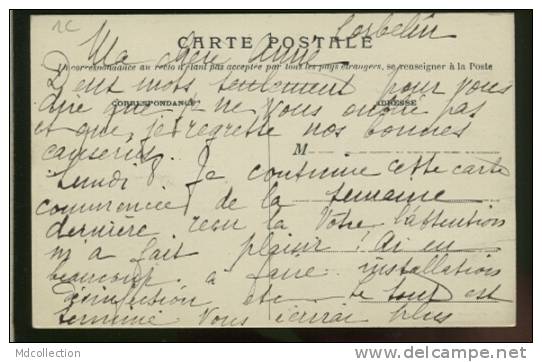 1C
Corbelin
Ma chère Amie
CARTE POSTALE
La correspondance au recto n'étant pas acceptée par tous les pays étrangers, se renseigner à la Poste
Deux mots seulement pour vous
CORRESPONDANCE
ADRESSE
dire que je ne vous oublie pas
et que je regrette nos bonnes
causeries.
M
Lundi 8. Je continue cette carte
commencée de la semaine
dernière reçu la vôtre l'attention
m'a fait plaisir. Ai eu
beaucoup à faire installation
désinfection etc le tout est
terminé Vous écrirai plus
MDcollection
http://www.delcampe.net